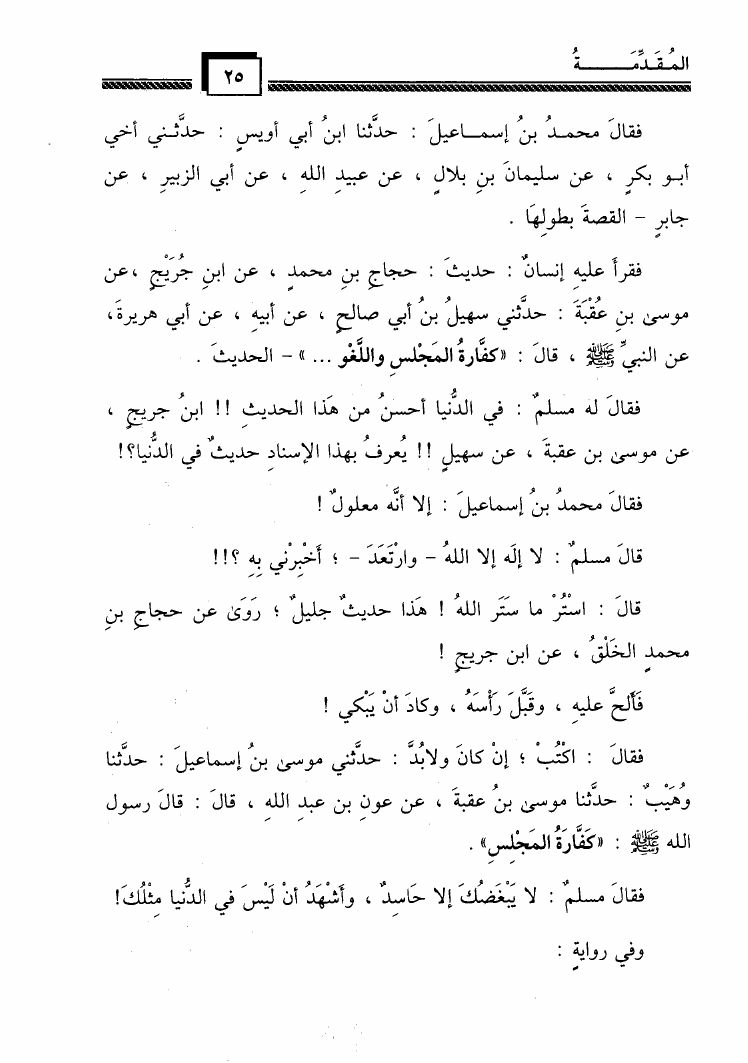 المُقَدِّمَـــــــةُ
٢٥
فقالَ محمـدُ بنُ إسمــاعيلَ : حدَّثنا ابنُ أبي أويسٍ : حدَّثـني أخي
أبـو بكرٍ ، عن سليمانَ بنِ بلالٍ ، عن عبيدِ اللهِ ، عن أبي الزبيرِ ، عن
جابرٍ – القصةَ بطولِهَا .
فقرأَ عليهِ إنسانٌ : حديثَ : حجاجِ بنِ محمدٍ ، عن ابنِ جُرَيْجٍ ،عن
موسىٰ بنِ عُقْبَةَ : حدَّثني سهيلُ بنُ أبي صالحٍ ، عن أبيهِ ، عن أبي هريرةَ،
عن النبيِّ ﷺ ، قالَ : «كفَّارةُ المَجْلسِ واللَّغْو ... » – الحديثَ .
فقالَ له مسلمٌ : في الدُّنيا أحسنُ من هَذا الحديثِ !! ابنُ جريجٍ ،
عن موسىٰ بنِ عقبةَ ، عن سهيلٍ !! يُعرفُ بهذا الإسنادِ حديثٌ في الدُّنيا؟!
فقالَ محمدُ بنُ إسماعيلَ : إلا أنَّه معلولٌ !
قالَ مسلمٌ : لا إلَه إلا اللهُ – وارْتَعَدَ – ؛ أخْبِرْني بِهِ ؟!!
قالَ : اسْتُرْ ما سَتَر اللهُ ! هَذا حديثٌ جليلٌ ؛ رَوَىٰ عن حجاجِ بنِ
محمدٍ الخَلْقُ ، عن ابنِ جريجٍ !
فَأَلحَّ عليهِ ، وقَبَّلَ رَأْسَهُ ، وكادَ أنْ يَبْكي !
فقالَ : اكْتُبْ ؛ إنْ كانَ ولابُدَّ : حدَّثني موسىٰ بنُ إسماعيلَ : حدَّثنا
وُهَيْبٌ : حدَّثنا موسىٰ بنُ عقبةَ ، عن عونِ بنِ عبدِ اللهِ ، قالَ : قالَ رسول
الله ﷺ : «كَفَّارَةُ المَجْلِسِ» .
فقالَ مسلمٌ : لا يَبْغَضُكَ إلا حَاسِدٌ ، وأَشْهَدُ أنْ لَيْسَ في الدُّنيا مِثْلُكَ!
وفي روايةٍ :